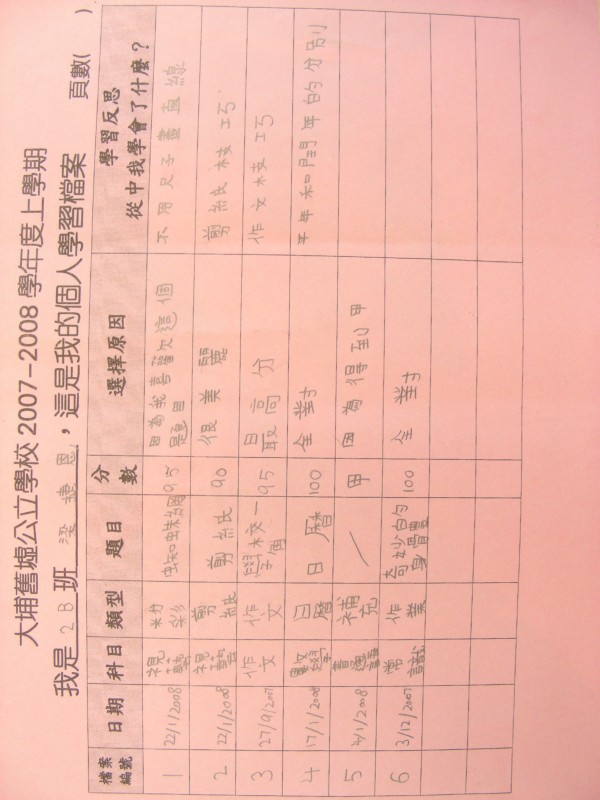 大埔舊墟公立學校 2007-2008 學年度上學期
我是 2B 班 梁捷恩，這是我的個人學習檔案 頁數( )
檔案編號 日期 科目 類型 題目 分數 選擇原因 學習反思 從中我學會了什麼？
1 22/1/2008 視藝 粉彩 蜘蛛網 95 因為我喜歡這個題目 不用尺子畫直線
2 22/1/2008 視藝 剪紙 剪紙 90 很美麗 剪紙枝巧
3 27/9/2007 作文 作文 學校一角 95 最高分 作文枝巧
4 17/1/2008 數學 日曆 日曆 100 全對 平年和閏年的分別
5 4/1/2008 補充 / 甲 因為得到甲
6 3/12/2007 常識 作業 奇妙的身體 100 全對